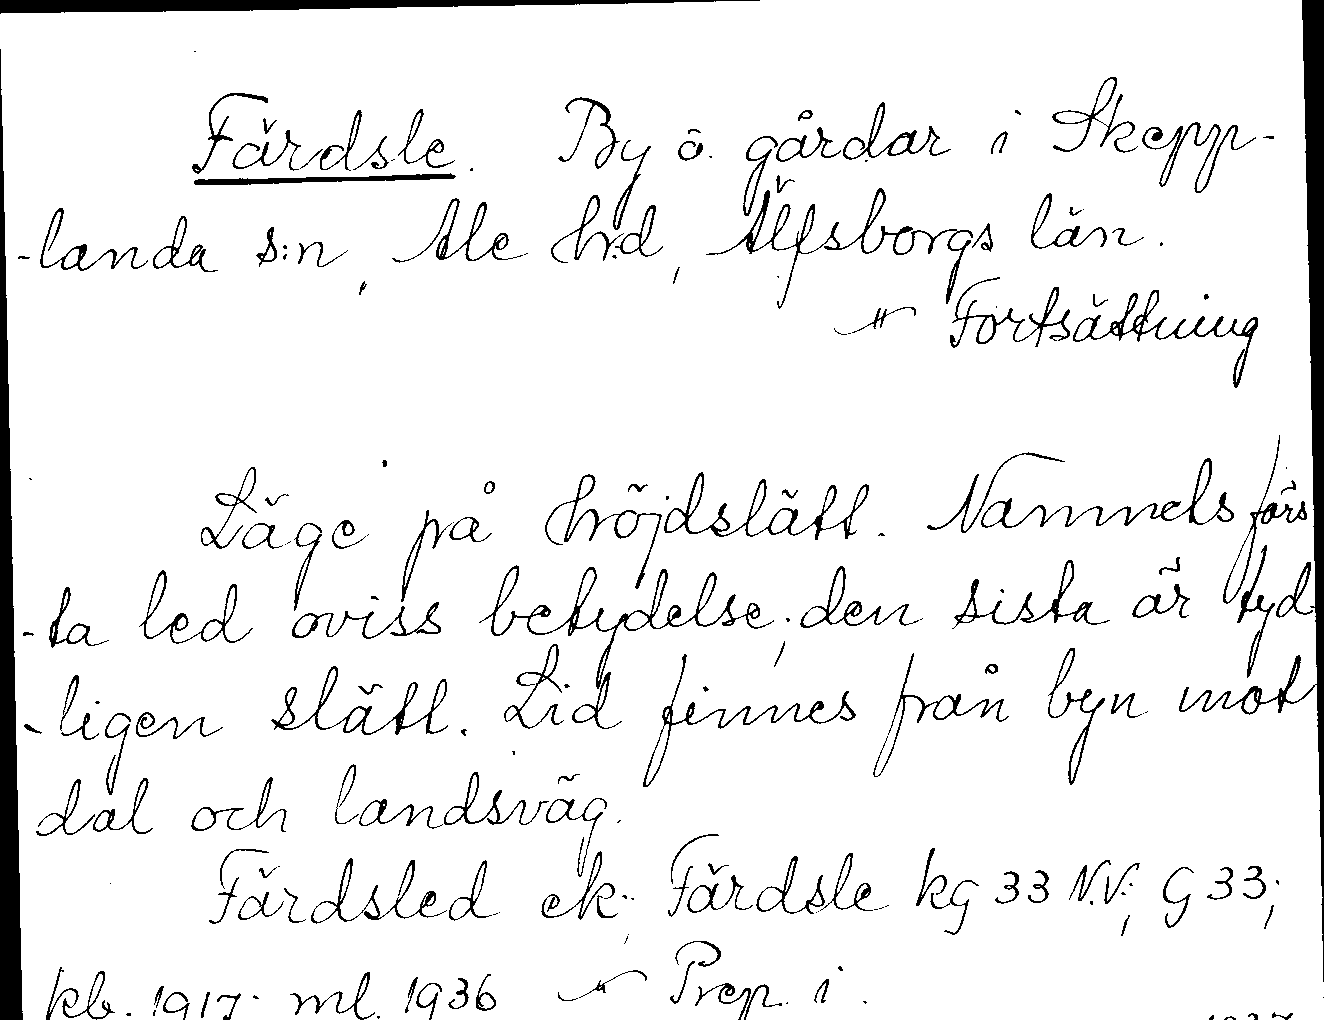 Färdsle. By o. gårdar i Skepp-
-landa s:n, Ale hrd, Älfsborgs län.
Fortsättning
Läge på höjdslätt. Namnets förs
-ta led oviss betydelse; den sista är tyd
-ligen slätt. Lid finnes från byn mot
dal och landsväg.
Färdsled ek.; Färdsle kg 33 N.V.; G 33;
kb. 1917. ml. 1936 Prep. i.